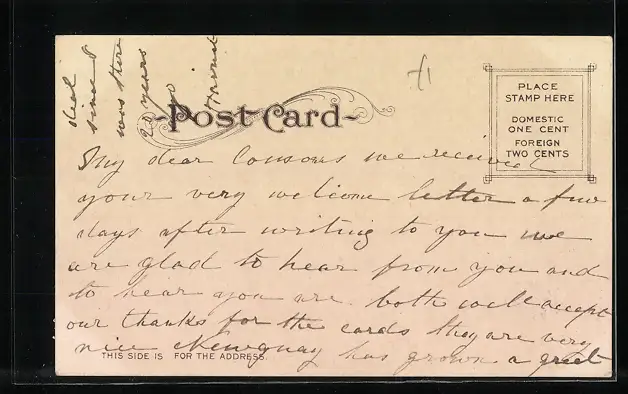 Post Card
PLACE
STAMP HERE
DOMESTIC
ONE CENT
FOREIGN
TWO CENTS
My dear Cousons we received
your very welcome letter a few
days after writing to you we
are glad to hear from you and
to hear you are both well accept
our thanks for the cards they are very
nice Newquay has grown a greet
THIS SIDE IS FOR THE ADDRESS.
deal
since I
was there
20 years